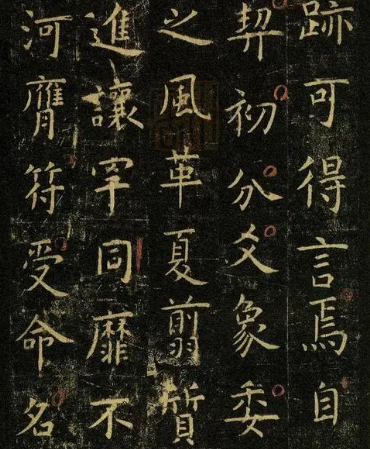 跡可得言焉自
契初分爻象委
之風革夏翦質
進讓罕同靡不
河膺符受命名